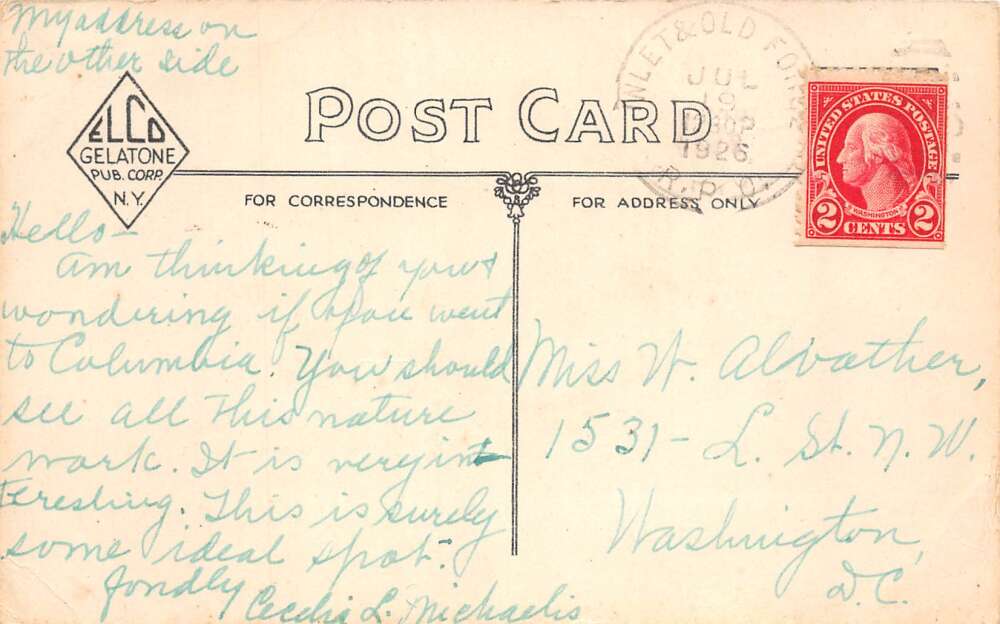 My address on
the other side
ELCO
GELATONE
PUB. CORP.
N.Y.
POST CARD
INLET & OLD FORGE
JUL
1926
R.P.O.
UNITED STATES POSTAGE
WASHINGTON
2 CENTS 2
FOR CORRESPONDENCE
FOR ADDRESS ONLY
Hello—
Am thinking of you &
wondering if you went
to Columbia. You should
see all this nature
work. It is very in-
teresting. This is surely
some ideal spot.
Fondly
Cecelia L. Michaelis
Miss W. Alvather,
1531- L. St. N.W.
Washington,
D.C.